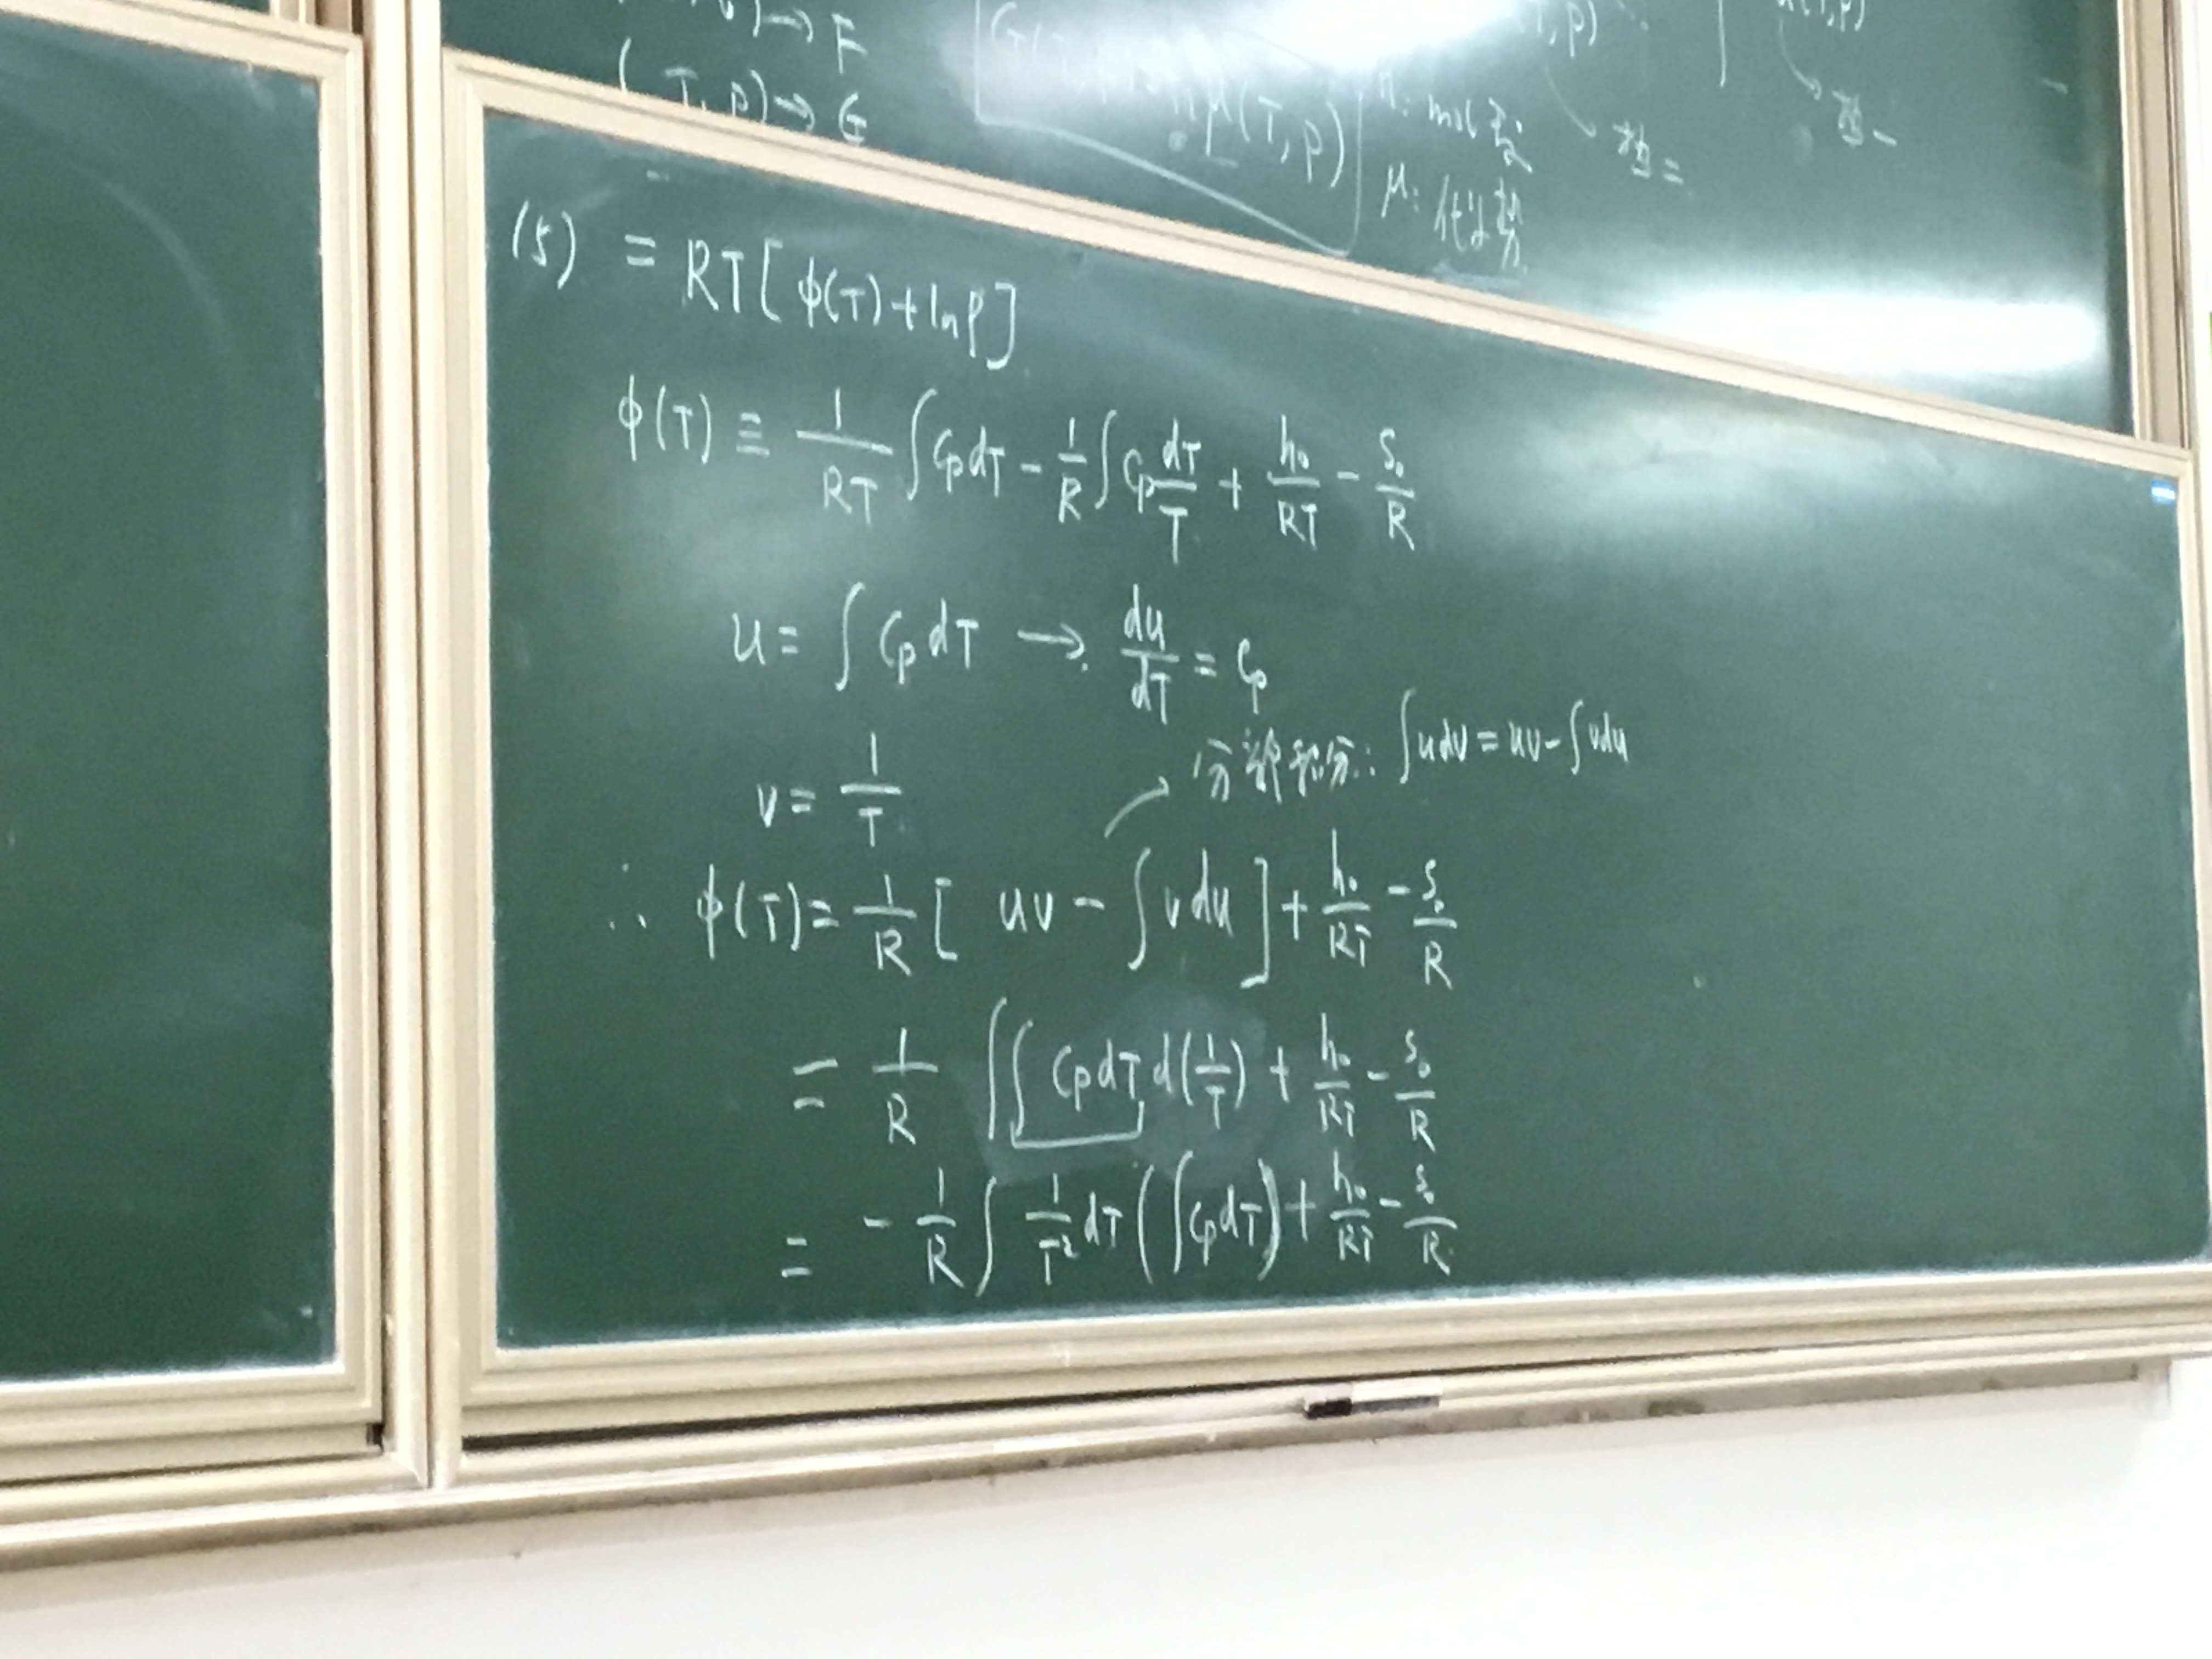 ) → F
(T, p) → G
G(T, p) = nμ(T, p)
n: mol 数
μ: 化学势
T, p)
(T, p)
(5) = RT[φ(T) + ln p]
φ(T) ≡ 1/(RT) ∫ Cp dT - 1/R ∫ Cp dT/T + h₀/(RT) - S₀/R
u = ∫ Cp dT → du/dT = Cp
v = 1/T
分部积分: ∫udv = uv - ∫vdu
∴ φ(T) = 1/R [ uv - ∫ v du ] + h₀/(RT) - S₀/R
= 1/R ∫∫ Cp dT d(1/T) + h₀/(RT) - S₀/R
= - 1/R ∫ 1/T² dT (∫ Cp dT) + h₀/(RT) - S₀/R